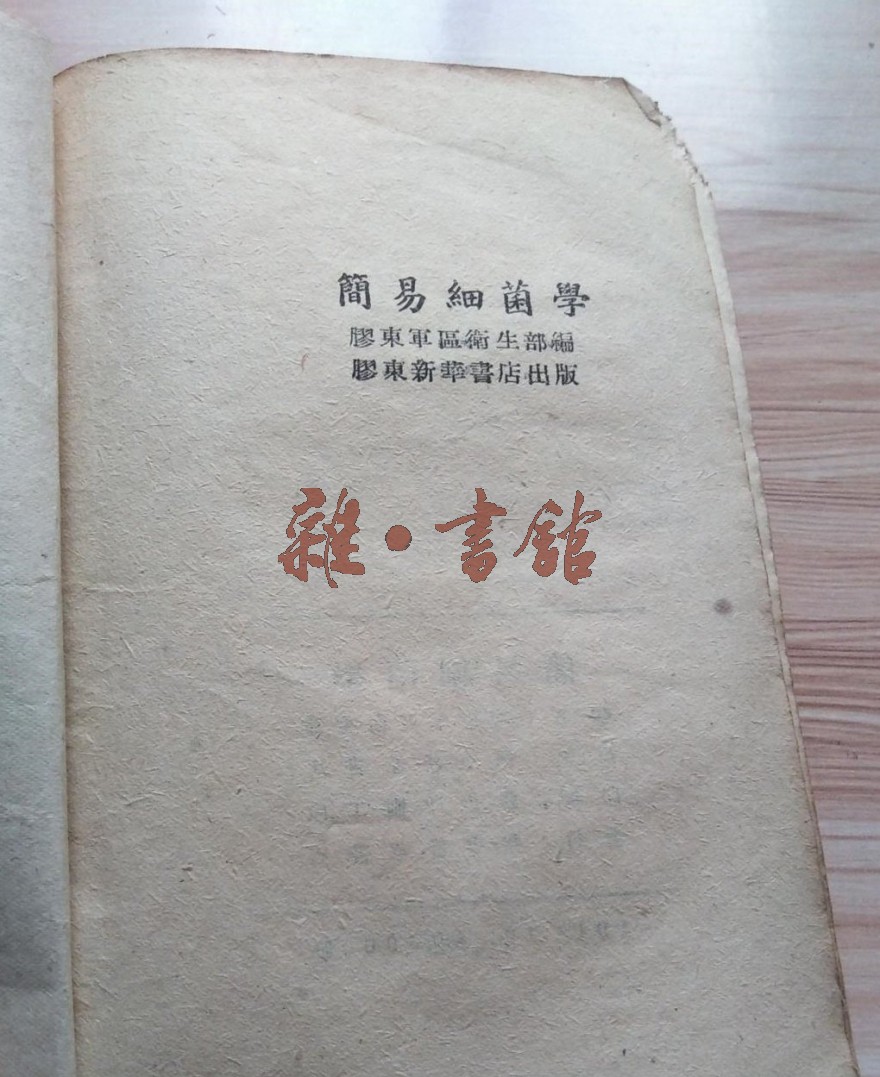 簡易細菌學
膠東軍區衛生部編
膠東新華書店出版
雜·書館